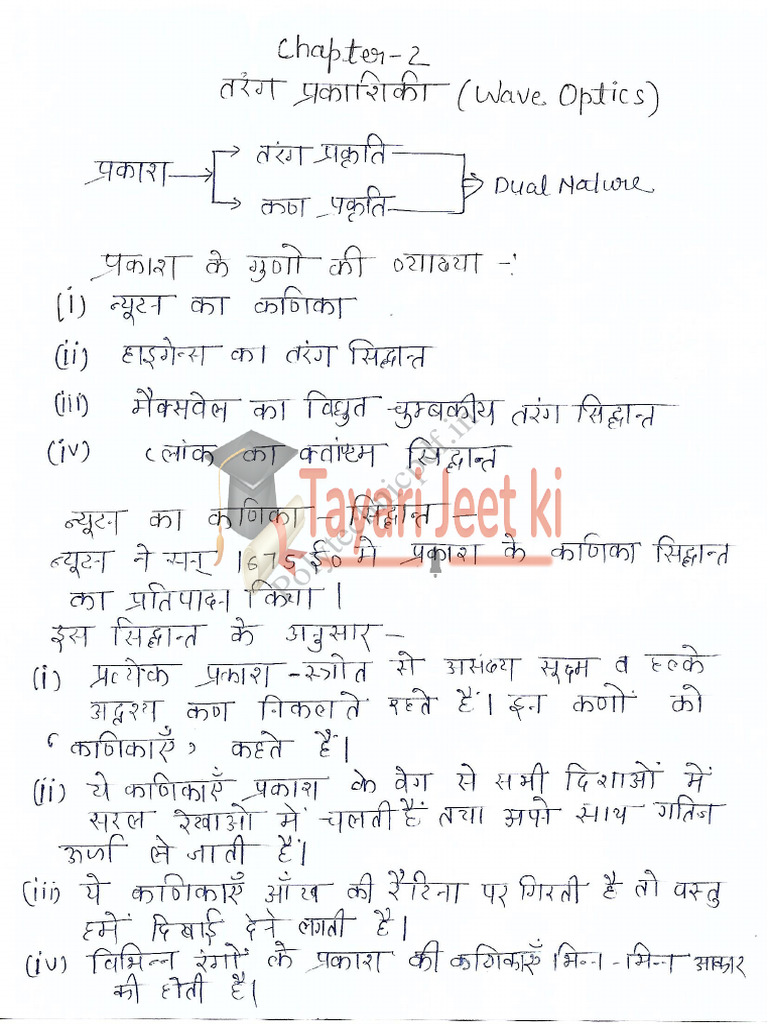 Chapter-2
तरंग प्रकाशिकी (Wave Optics)
प्रकाश → तरंग प्रकृति
→ कण प्रकृति
⇒ Dual Nature
प्रकाश के गुणो की व्याख्या -:
(i) न्यूटन का कणिका
(ii) हाइगेन्स का तरंग सिद्धान्त
(iii) मैक्सवेल का विद्युत चुम्बकीय तरंग सिद्धान्त
(iv) प्लांक का क्वांटम सिद्धान्त
Tayari Jeet ki
न्यूटन का कणिका - सिद्धान्त -
न्यूटन ने सन् 1675 ई० मे प्रकाश के कणिका सिद्धान्त
का प्रतिपादन किया।
इस सिद्धान्त के अनुसार -
(i) प्रत्येक प्रकाश -स्त्रोत से असंख्य सूक्ष्म व हल्के
अदृश्य कण निकलते रहते हैं। इन कणों को
‘कणिकाएँ’ कहते हैं।
(ii) ये कणिकाएँ प्रकाश के वेग से सभी दिशाओं में
सरल रेखाओ में चलती हैं तथा अपने साथ गतिज
ऊर्जा ले जाती हैं।
(iii) ये कणिकाएँ आँख की रैटिना पर गिरती है तो वस्तु
हमें दिखाई देने लगती है।
(iv) विभिन्न रंगों के प्रकाश की कणिकाएँ भिन्न -भिन्न आकार
की होती है।